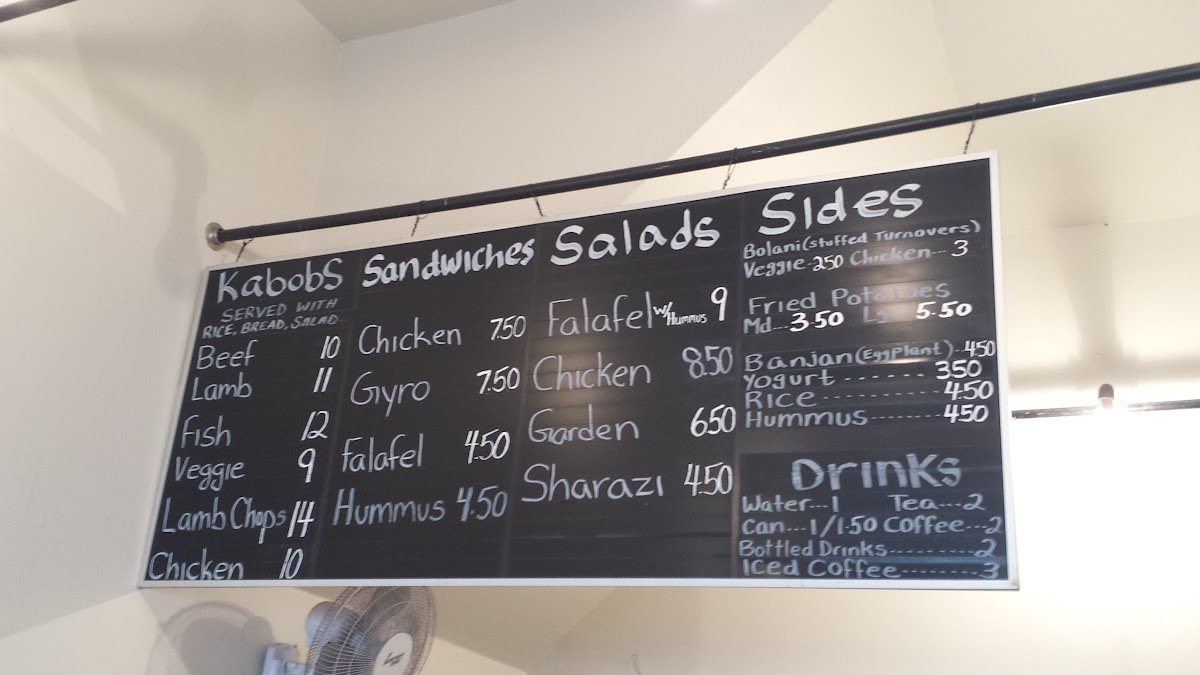 Kabobs
SERVED WITH
RICE, BREAD, SALAD
Beef 10
Lamb 11
Fish 12
Veggie 9
Lamb Chops 14
Chicken 10
Sandwiches
Chicken 7.50
Gyro 7.50
Falafel 4.50
Hummus 4.50
Salads
Falafel w/Hummus 9
Chicken 8.50
Garden 650
Sharazi 4.50
Sides
Bolani (Stuffed Turnovers)
Veggie--250 Chicken--- 3
Fried Potatoes
Md...3.50 Lg 5.50
Banjan (EggPlant)--450
Yogurt ------- 350
Rice----------- 4.50
Hummus------- 450
Drinks
Water---1 Tea---2
Can---1/1.50 Coffee---2
Bottled Drinks---------2
Iced Coffee--------3